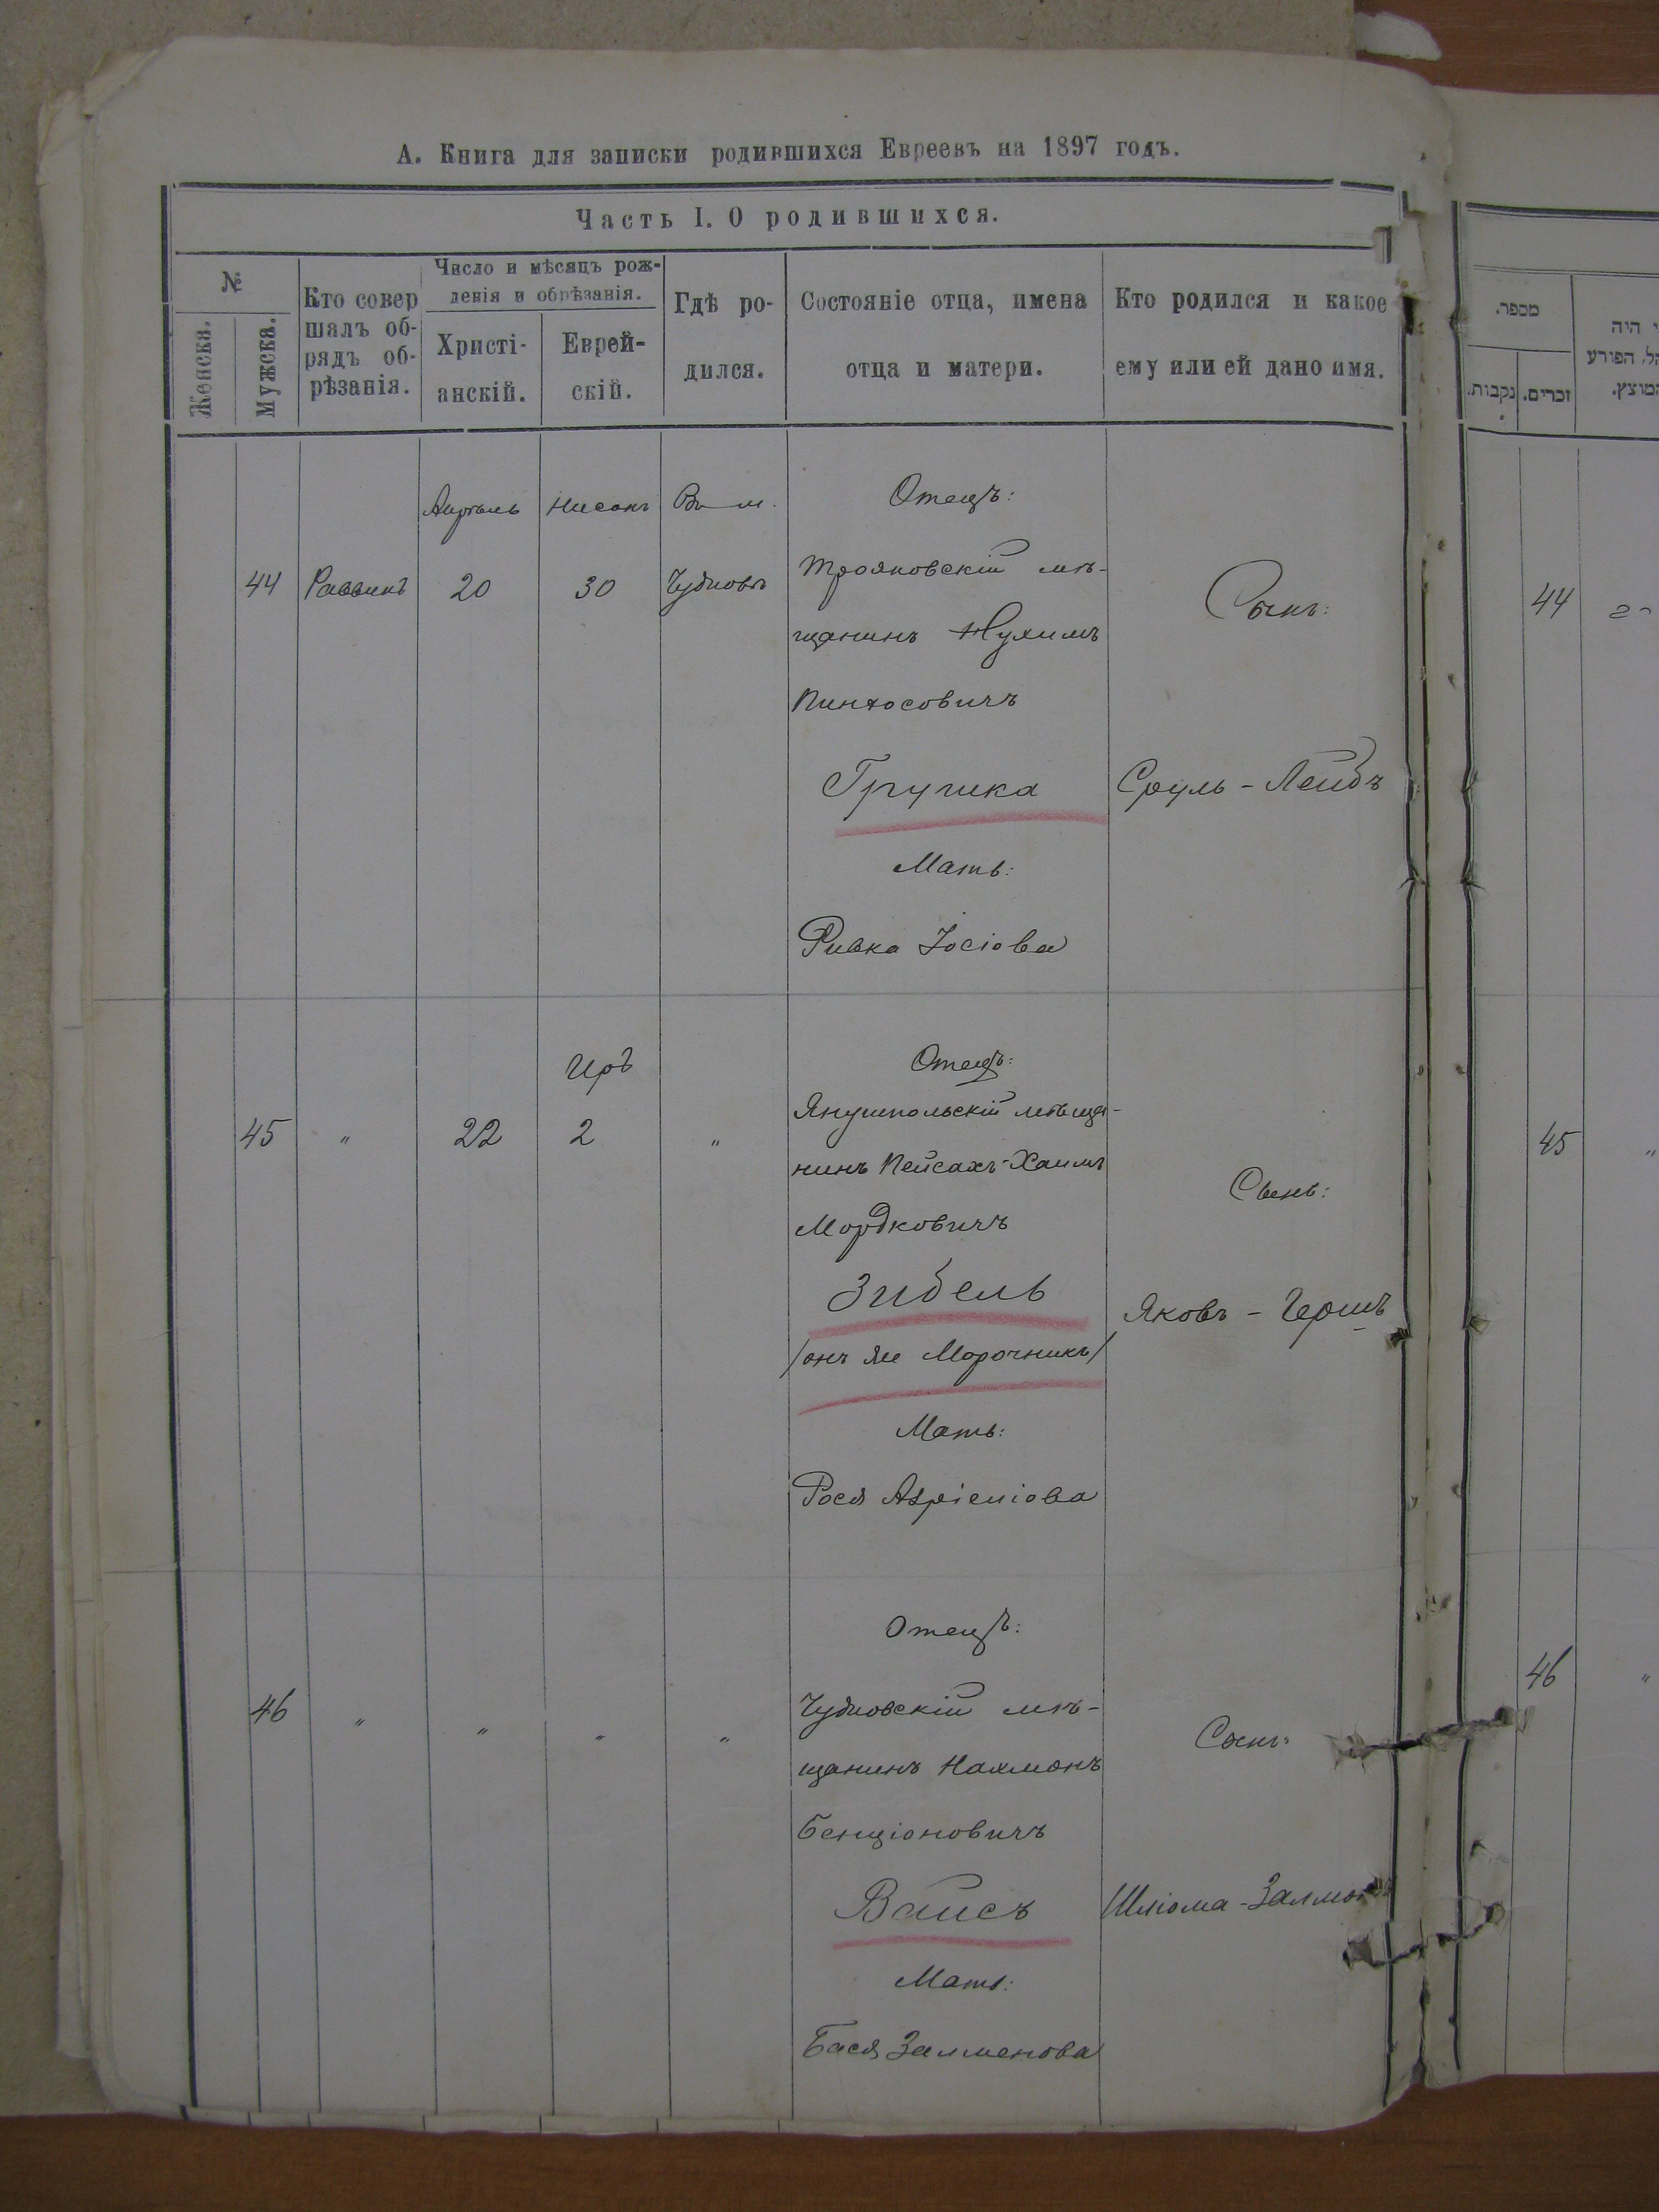 А. Книга для записки родившихся Евреевъ на 1897 годъ.
Часть I. О родившихся.
№
Женска.
Мужска.
Кто совер
шалъ об-
рядъ об-
рѣзанія.
Число и мѣсяцъ рож-
денія и обрѣзанія.
Христі-
анскій.
Еврей-
скій.
Гдѣ ро-
дился.
Состояніе отца, имена
отца и матери.
Кто родился и какое
ему или ей дано имя.
מספר.
זכרים.
נקבות.
היה
הפורע
44
Раввинъ
Апрѣль
20
Нисонъ
30
Въ м.
Чудновѣ
Отецъ:
Трояновскій мѣ-
щанинъ Нухимъ
Пинхосовичъ
Грушка
Мать:
Ривка Іосіова
Сынъ:
Сруль-Лейбъ
44
45
"
22
Иръ
2
"
Отецъ:
Янушпольскій мѣща-
нинъ Пейсахъ-Хаимъ
Мордковичъ
Зибель
/онъ же Морочникъ/
Мать:
Рося Азріеліова
Сынъ:
Яковъ-Гершъ
45
"
46
"
"
"
"
Отецъ:
Чудновскій мѣ-
щанинъ Нахманъ
Бенціоновичъ
Вайсъ
Мать:
Бася Залменова
Сынъ:
Шліома-
46
"